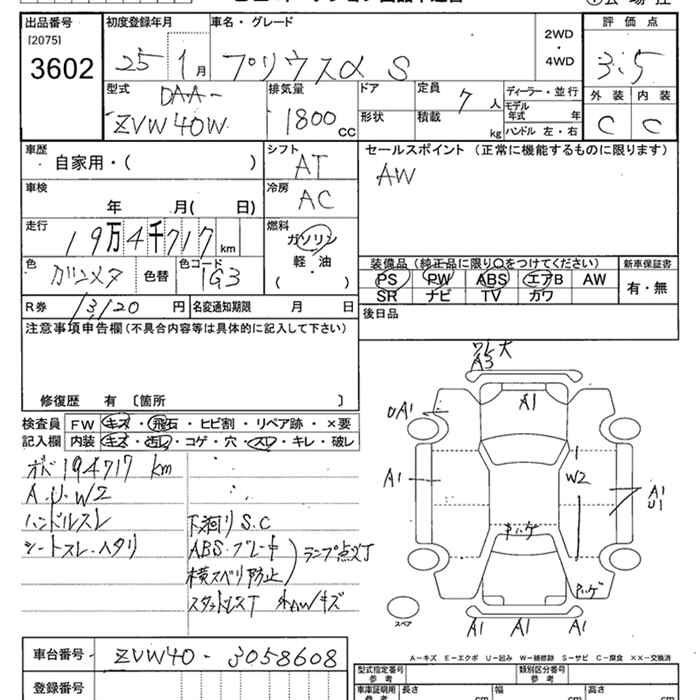 出品番号
[2075]
3602
初度登録年月
25 1 月
車名・グレード
プリウスα S
2WD
・
4WD
評価点
3.5
外装 内装
C C
型式
DAA-
ZVW40W
排気量
1800 cc
ドア
形状
定員
7 人
積載
kg
ディーラー・並行
モデル年式 年
ハンドル 左・右
車歴
自家用・( )
シフト
AT
セールスポイント (正常に機能するものに限ります)
AW
車検
年 月( 日)
冷房
AC
走行
19万4千717 km
燃料
ガソリン
軽・油
( )
色
ガンメタ
色替
色コード
1G3
装備品 (純正品に限り○をつけてください)
PS PW ABS エアB AW
SR ナビ TV カワ
新車保証書
有・無
R券
13120 円
名変通知期限 月 日
後日品
注意事項申告欄 (不具合内容等は具体的に記入して下さい)
修復歴 有 〔箇所 〕
検査員記入欄
FW キズ・飛石・ヒビ割・リペア跡・×要
内装 キズ・汚レ・コゲ・穴・スレ・キレ・破レ
メーター 194717 km
A.U.W2
ハンドルスレ
シートスレ・ヘタリ
下廻りS.C
ABS・ブレーキ
横スベリ防止
ランプ点灯
スタッドレスT 外AWキズ
ワレ大
A3
A1
DA1
A1
W2
A1
U1
ハゲ
ハゲ
スペア
A1 A1 A1
A-キズ E-エクボ U-凹み W-補修跡 S-サビ C-腐食 ××-交換済
車台番号
ZVW40-3058608
登録番号
型式指定番号
参考
類別区分番号
参考
車庫証明用
参考
長さ cm
幅 cm
高さ cm